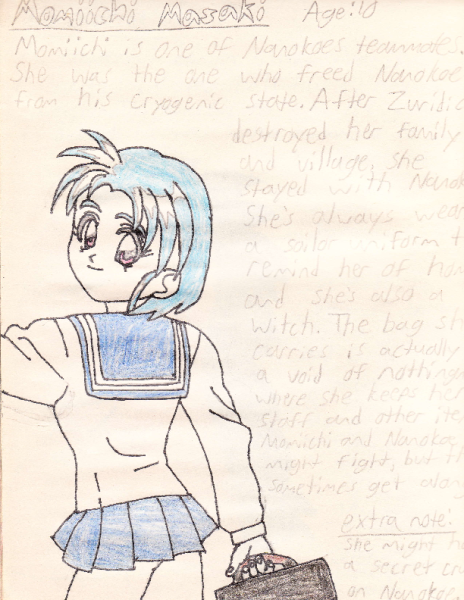 Momiichi Masaki Age: 10
Momiichi is one of Nanokaes teammates.
She was the one who freed Nanokae
from his cryogenic state. After Zuridic
destroyed her family
and village, she
stayed with Nanok
She's always wear
a sailor uniform t
remind her of hom
and she's also a
witch. The bag sh
carries is actually
a void of nothingn
where she keeps her
staff and other ite
Momiichi and Nanokae
might fight, but th
sometimes get along
extra note:
she might h
a secret cr
on Nanokae.